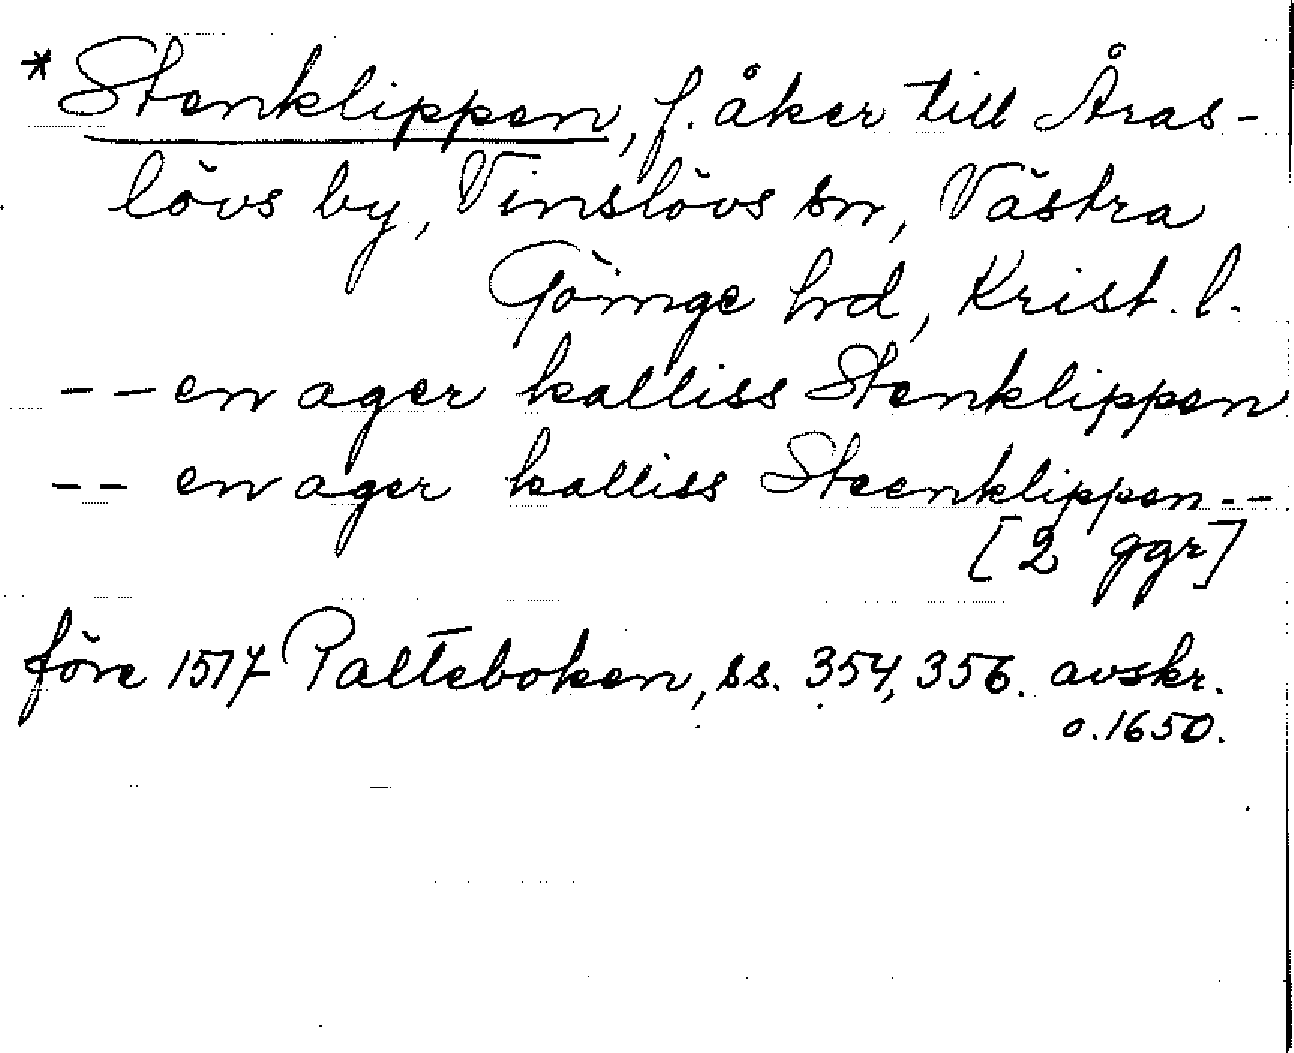 * Stenklippen, f. åker till Åras-
lövs by, Vinslövs sn, Västra
Göinge hrd, Krist. l.
-- en ager kalliss Stenklippen
-- en ager kalliss Steenklippen --
[2 ggr]
före 1517 Palteboken, ss. 354, 356. avskr.
o. 1650.